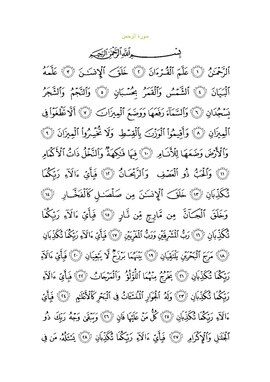 سورة الرحمن
بِسْمِ اللَّهِ الرَّحْمَٰنِ الرَّحِيمِ
الرَّحْمَٰنُ ١ عَلَّمَ الْقُرْءَانَ ٢ خَلَقَ الْإِنسَٰنَ ٣ عَلَّمَهُ
الْبَيَانَ ٤ الشَّمْسُ وَالْقَمَرُ بِحُسْبَانٍ ٥ وَالنَّجْمُ وَالشَّجَرُ
يَسْجُدَانِ ٦ وَالسَّمَاءَ رَفَعَهَا وَوَضَعَ الْمِيزَانَ ٧ أَلَّا تَطْغَوْا فِي
الْمِيزَانِ ٨ وَأَقِيمُوا الْوَزْنَ بِالْقِسْطِ وَلَا تُخْسِرُوا الْمِيزَانَ ٩
وَالْأَرْضَ وَضَعَهَا لِلْأَنَامِ ١٠ فِيهَا فَٰكِهَةٌ وَالنَّخْلُ ذَاتُ الْأَكْمَامِ
١١ وَالْحَبُّ ذُو الْعَصْفِ وَالرَّيْحَانُ ١٢ فَبِأَيِّ ءَالَاءِ رَبِّكُمَا
تُكَذِّبَانِ ١٣ خَلَقَ الْإِنسَٰنَ مِن صَلْصَٰلٍ كَالْفَخَّارِ ١٤
وَخَلَقَ الْجَانَّ مِن مَّارِجٍ مِّن نَّارٍ ١٥ فَبِأَيِّ ءَالَاءِ رَبِّكُمَا
تُكَذِّبَانِ ١٦ رَبُّ الْمَشْرِقَيْنِ وَرَبُّ الْمَغْرِبَيْنِ ١٧ فَبِأَيِّ ءَالَاءِ رَبِّكُمَا تُكَذِّبَانِ
١٨ مَرَجَ الْبَحْرَيْنِ يَلْتَقِيَانِ ١٩ بَيْنَهُمَا بَرْزَخٌ لَّا يَبْغِيَانِ ٢٠ فَبِأَيِّ ءَالَاءِ
رَبِّكُمَا تُكَذِّبَانِ ٢١ يَخْرُجُ مِنْهُمَا اللُّؤْلُؤُ وَالْمَرْجَانُ ٢٢ فَبِأَيِّ ءَالَاءِ
رَبِّكُمَا تُكَذِّبَانِ ٢٣ وَلَهُ الْجَوَارِ الْمُنشَئَاتُ فِي الْبَحْرِ كَالْأَعْلَٰمِ ٢٤ فَبِأَيِّ ءَالَاءِ
رَبِّكُمَا تُكَذِّبَانِ ٢٥ كُلُّ مَنْ عَلَيْهَا فَانٍ ٢٦ وَيَبْقَىٰ وَجْهُ رَبِّكَ ذُو
الْجَلَٰلِ وَالْإِكْرَامِ ٢٧ فَبِأَيِّ ءَالَاءِ رَبِّكُمَا تُكَذِّبَانِ ٢٨ يَسْئَلُهُ مَن فِي